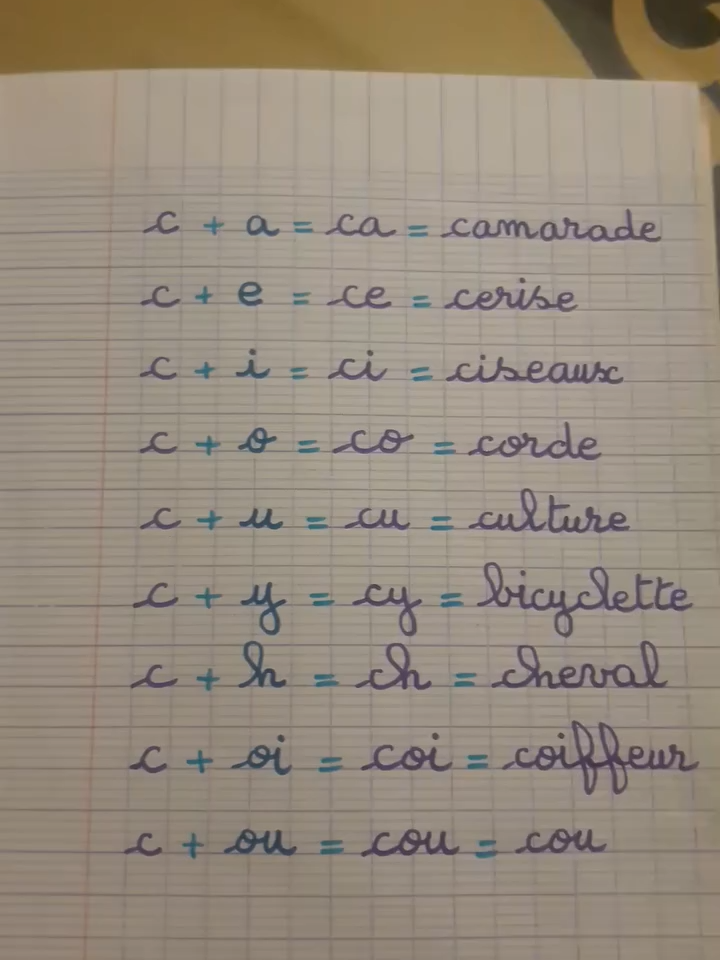 c + a = ca = camarade
c + e = ce = cerise
c + i = ci = ciseaux
c + o = co = corde
c + u = cu = culture
c + y = cy = bicyclette
c + h = ch = cheval
c + oi = coi = coiffeur
c + ou = cou = cou